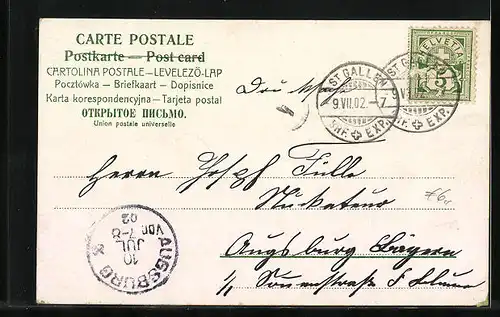 CARTE POSTALE
Postkarte — Post card
CARTOLINA POSTALE—LEVELEZŐ-LAP
Pocztówka — Briefkaart — Dopisnice
Karta korespondencyjna—Tarjeta postal
ОТКРЫТОЕ ПИСЬМО.
Union postale universelle
HELVETIA
5
ST. GALLEN
9.VII.02.–7
BRF. EXP.
ST. GALLEN
BRF. EXP.
Herrn Joseph Fülle
Augsburg Bayern
AUGSBURG
10
JUL
02
VOR. 7-8